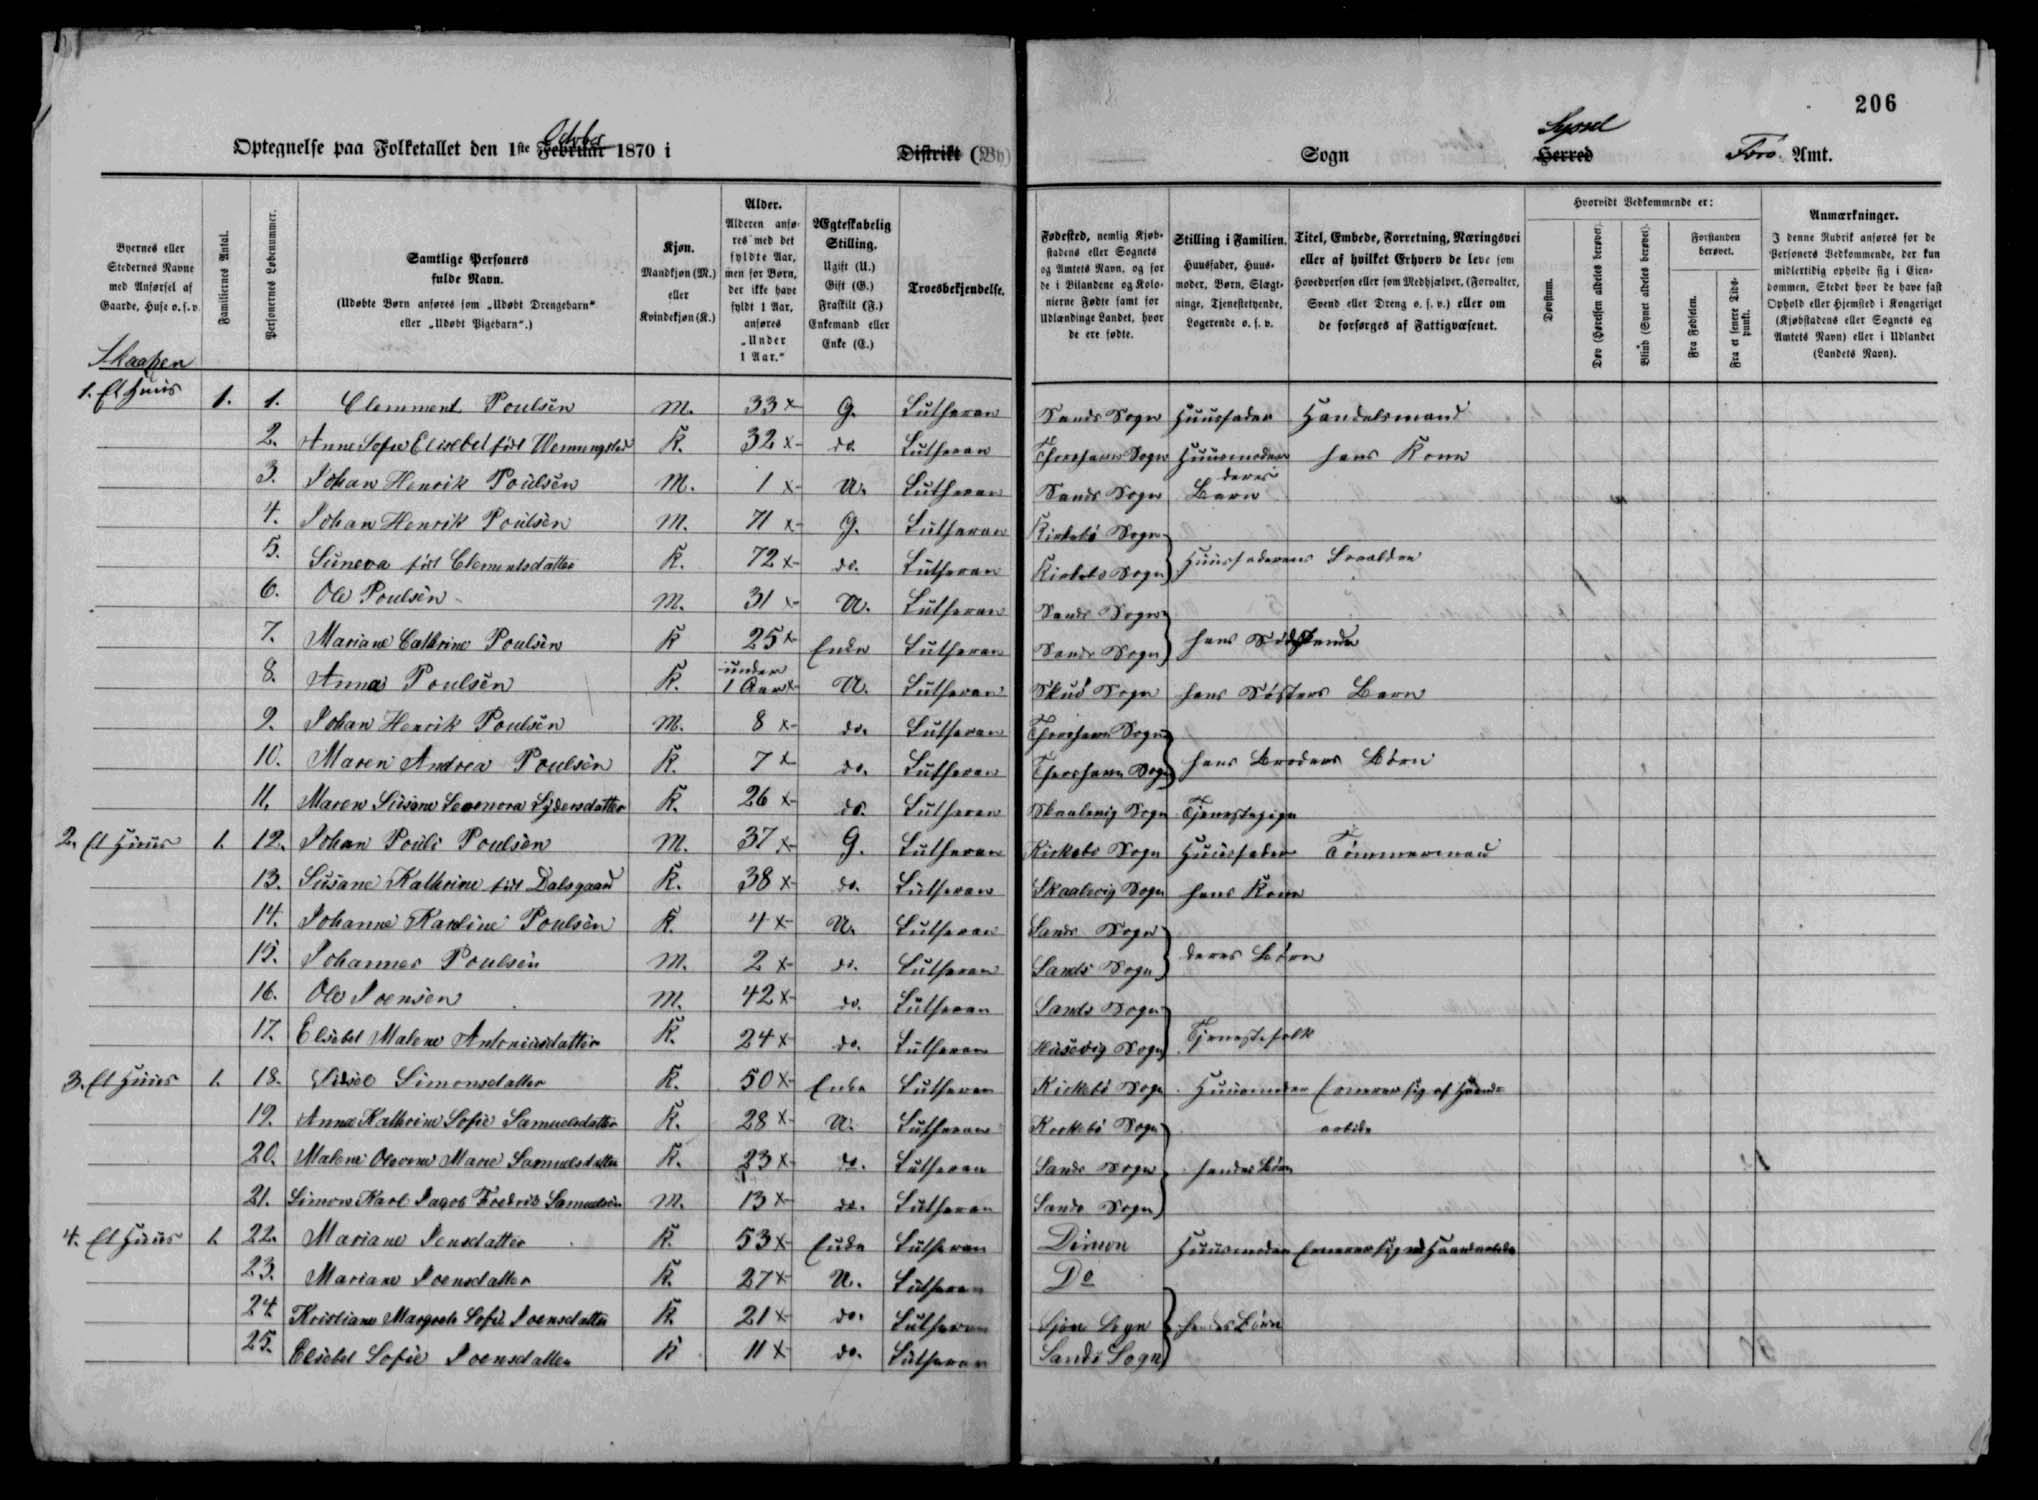 206
Optegnelse paa Folketallet den 1ste Februar October 1870 i Distrikt (By) Sogn Herred Syssel Færø Amt.
Byernes eller Stedernes Navne med Anførsel af Gaarde, Huse o. s. v.
Familiernes Antal.
Personernes Løbenummer.
Samtlige Personers fulde Navn.
(Udøbte Børn anføres som „Udøbt Drengebarn“ eller „Udøbt Pigebarn“.)
Kjøn.
Mandkjøn (M.) eller Kvindekjøn (K.)
Alder.
Alderen anføres med det fyldte Aar, men for Børn, der ikke have fyldt 1 Aar, anføres „Under 1 Aar.“
Ægteskabelig Stilling.
Ugift (U.) Gift (G.) Fraskilt (F.) Enkemand eller Enke (E.)
Troesbekjendelse.
Fødested, nemlig Kjøbstadens eller Sognets og Amtets Navn, og for de i Bilandene og Kolonierne Fødte samt for Udlændinge Landet, hvor de ere fødte.
Stilling i Familien.
Huusfader, Huusmoder, Børn, Slægtninge, Tjenestetyende, Logerende o. s. v.
Titel, Embede, Forretning, Næringsvei eller af hvilket Erhverv de leve som Hovedperson eller som Medhjælper, (Forvalter, Svend eller Dreng o. s. v.) eller om de forsørges af Fattigvæsenet.
Hvorvidt Vedkommende er:
Døvstum.
Døv (Hørelsen aldeles berøvet).
Blind (Synet aldeles berøvet).
Forstanden berøvet.
Fra Fødselen.
Fra et senere Tidspunkt.
Anmærkninger.
I denne Rubrik anføres for de Personers Vedkommende, der kun midlertidig opholde sig i Eiendommen, Stedet hvor de have fast Ophold eller Hjemsted i Kongeriget (Kjøbstadens eller Sognets og Amtets Navn) eller i Udlandet (Landets Navn).
Skaapen
1. Et Huus 1. 1. Clemment Poulsen M. 33 x G. Lutheran Sands Sogn Huusfader Handelsmand
2. Anne Sofie Elisebet født Wenningsted K. 32 x do. Lutheran Thorshavn Sogn Huusmoder hans Kone
3. Johan Henrik Poulsen M. 1 x U. Lutheran Sands Sogn deres Barn
4. Johan Henrik Poulsen M. 71 x G. Lutheran Kirkebø Sogn
5. Suneva født Clementsdatter K. 72 x do. Lutheran Kirkebø Sogn Huusfaderens Forældre
6. Ole Poulsen M. 31 x U. Lutheran Sands Sogn
7. Mariane Cathrine Poulsen K 25 x Enke Lutheran Sands Sogn hans Sødskende
8. Anna Poulsen K. under 1 Aar x U. Lutheran Sogn hans Søsters Barn
9. Johan Henrik Poulsen M. 8 x do. Lutheran Thorshavn Sogn
10. Maren Andrea Poulsen K. 7 x do. Lutheran Thorshavn Sogn hans Broders Børn
11. Maren Susane Leonora K. 26 x do. Lutheran Skaalevig Sogn Tjenestepige
2. Et Huus 1. 12. Johan Pouli Poulsen M. 37 x G. Lutheran Kirkebø Sogn Huusfader Tømmermand
13. Susane Kathrine født Dalsgaard K. 38 x do. Lutheran Skaalevig Sogn hans Kone
14. Johanne Karoline Poulsen K. 4 x U. Lutheran Sands Sogn
15. Johannes Poulsen M. 2 x do. Lutheran Sands Sogn deres Børn
16. Ole Joensen M. 42 x do. Lutheran Sands Sogn
17. Elsebet Malene Antoniusdatter K. 24 x do. Lutheran Husevig Sogn Tjenestefolk
3. Et Huus 1. 18. Sidsel Simonsdatter K. 50 x Enke Lutheran Kirkebø Sogn Huusmoder Ernærer sig af Haand-
19. Anna Kathrine Sofie Samuelsdatter K. 28 x U. Lutheran Kirkebø Sogn arbide
20. Malene Marie Samuelsdatter K. 23 x do. Lutheran Sands Sogn hendes Børn 1
21. Simon Karl Jacob Fredrik Samuelsen M. 13 x do. Lutheran Sands Sogn
4. Et Huus 1. 22. Mariane Jensdatter K. 53 x Enke Lutheran Dimon Huusmoder Ernærer sig ved Haandarbide
23. Mariane Joensdatter K. 27 x U. Lutheran Do
24. Kristiane Margrete Sofie Joensdatter K. 21 x do. Lutheran Sogn hendes Børn
25. Elsebet Sofie Joensdatter K 11 x do. Lutheran Sands Sogn